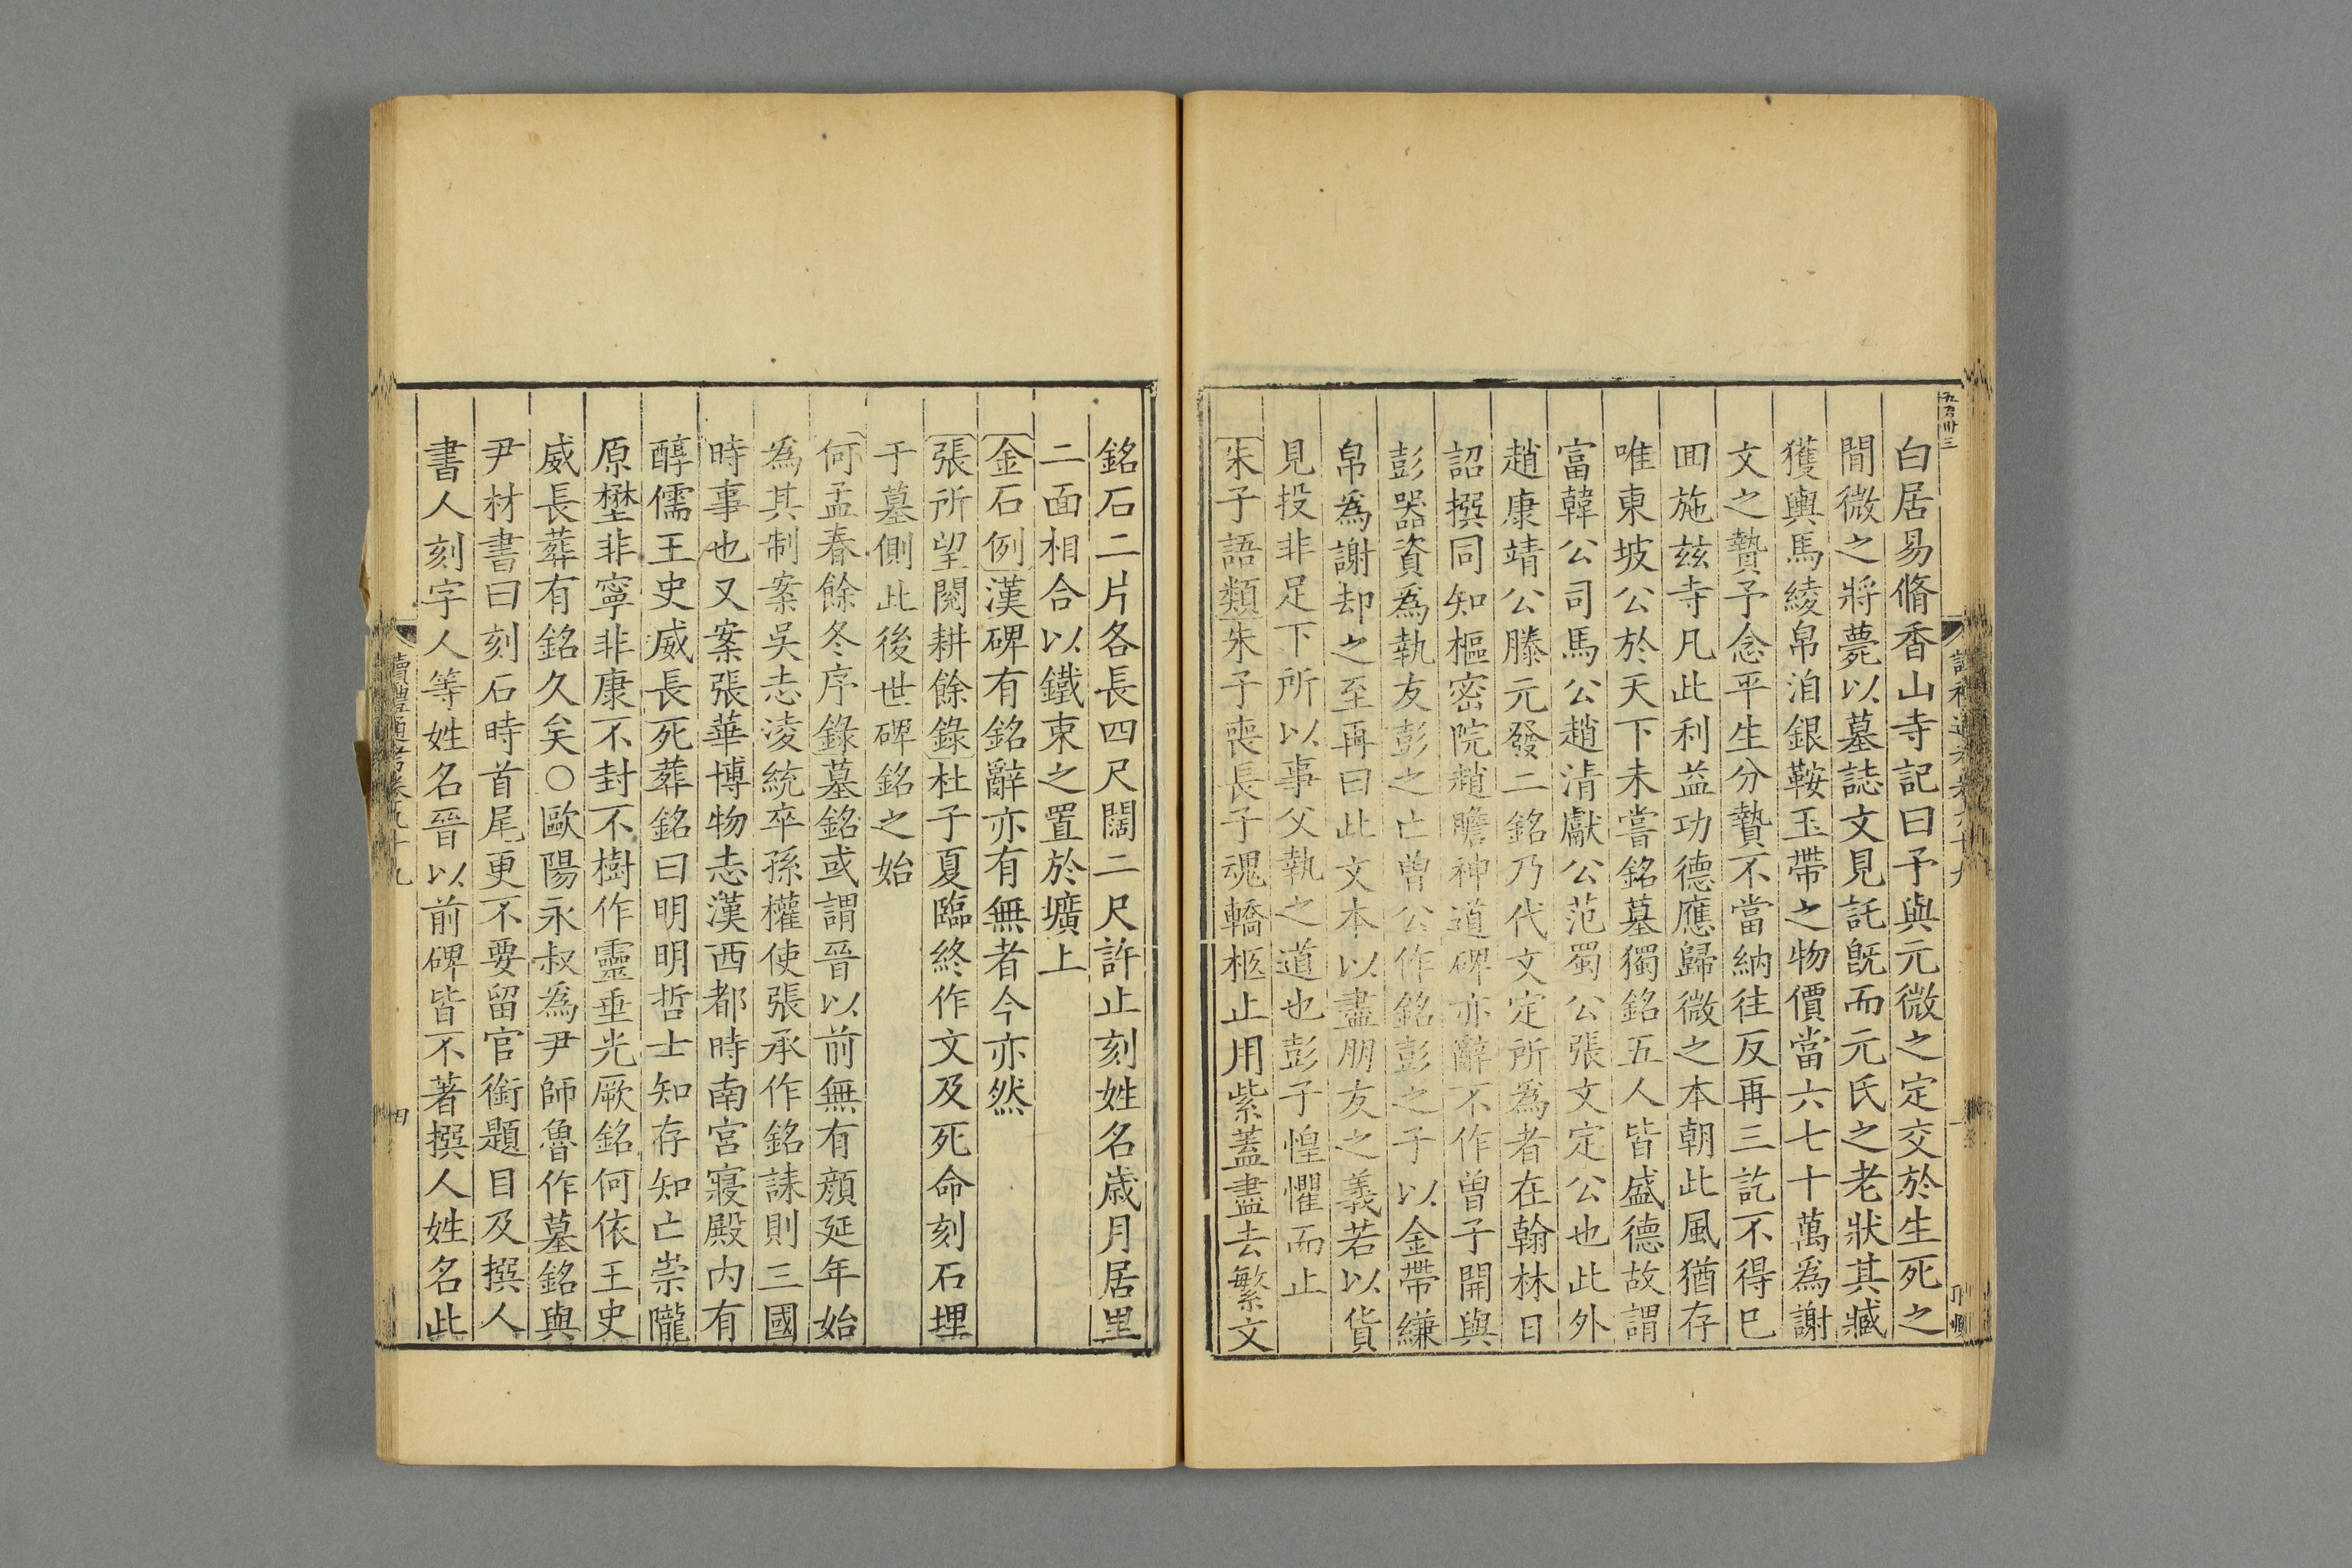 五百卅三
白居易脩香山寺記曰予與元微之定交於生死之
閒微之將薨以墓誌文見託旣而元氏之老狀其臧
獲輿馬綾帛洎銀鞍玉帶之物價當六七十萬爲謝
文之贄予念平生分贄不當納往反再三訖不得已
囬施玆寺凡此利益功德應歸微之本朝此風猶存
唯東坡公於天下未嘗銘墓獨銘五人皆盛德故謂
富韓公司馬公趙淸獻公范蜀公張文定公也此外
趙康靖公滕元發二銘乃代文定所爲者在翰林日
詔撰同知樞密院趙瞻神道碑亦辭不作曾子開與
彭器資爲執友彭之亡曾公作銘彭之子以金帶縑
帛爲謝却之至再曰此文本以盡朋友之義若以貨
見投非足下所以事父執之道也彭子惶懼而止
朱子語類朱子喪長子魂轎柩止用紫蓋盡去繁文
銘石二片各長四尺闊二尺許止刻姓名歲月居里
二面相合以鐵束之置於壙上
金石例漢碑有銘辭亦有無者今亦然
張所望閱耕餘錄杜子夏臨終作文及死命刻石埋
于墓側此後世碑銘之始
何孟春餘冬序錄墓銘或謂晉以前無有顏延年始
爲其制案吳志淩統卒孫權使張承作銘誄則三國
時事也又案張華博物志漢西都時南宮寢殿內有
醇儒王史威長死葬銘曰明明哲士知存知亡崇隴
原壄非寧非康不封不樹作靈垂光厥銘何依王史
威長葬有銘久矣○歐陽永叔爲尹師魯作墓銘與
尹材書曰刻石時首尾更不要留官銜題目及撰人
書人刻字人等姓名晉以前碑皆不著撰人姓名此
讀禮通考卷九十九
四